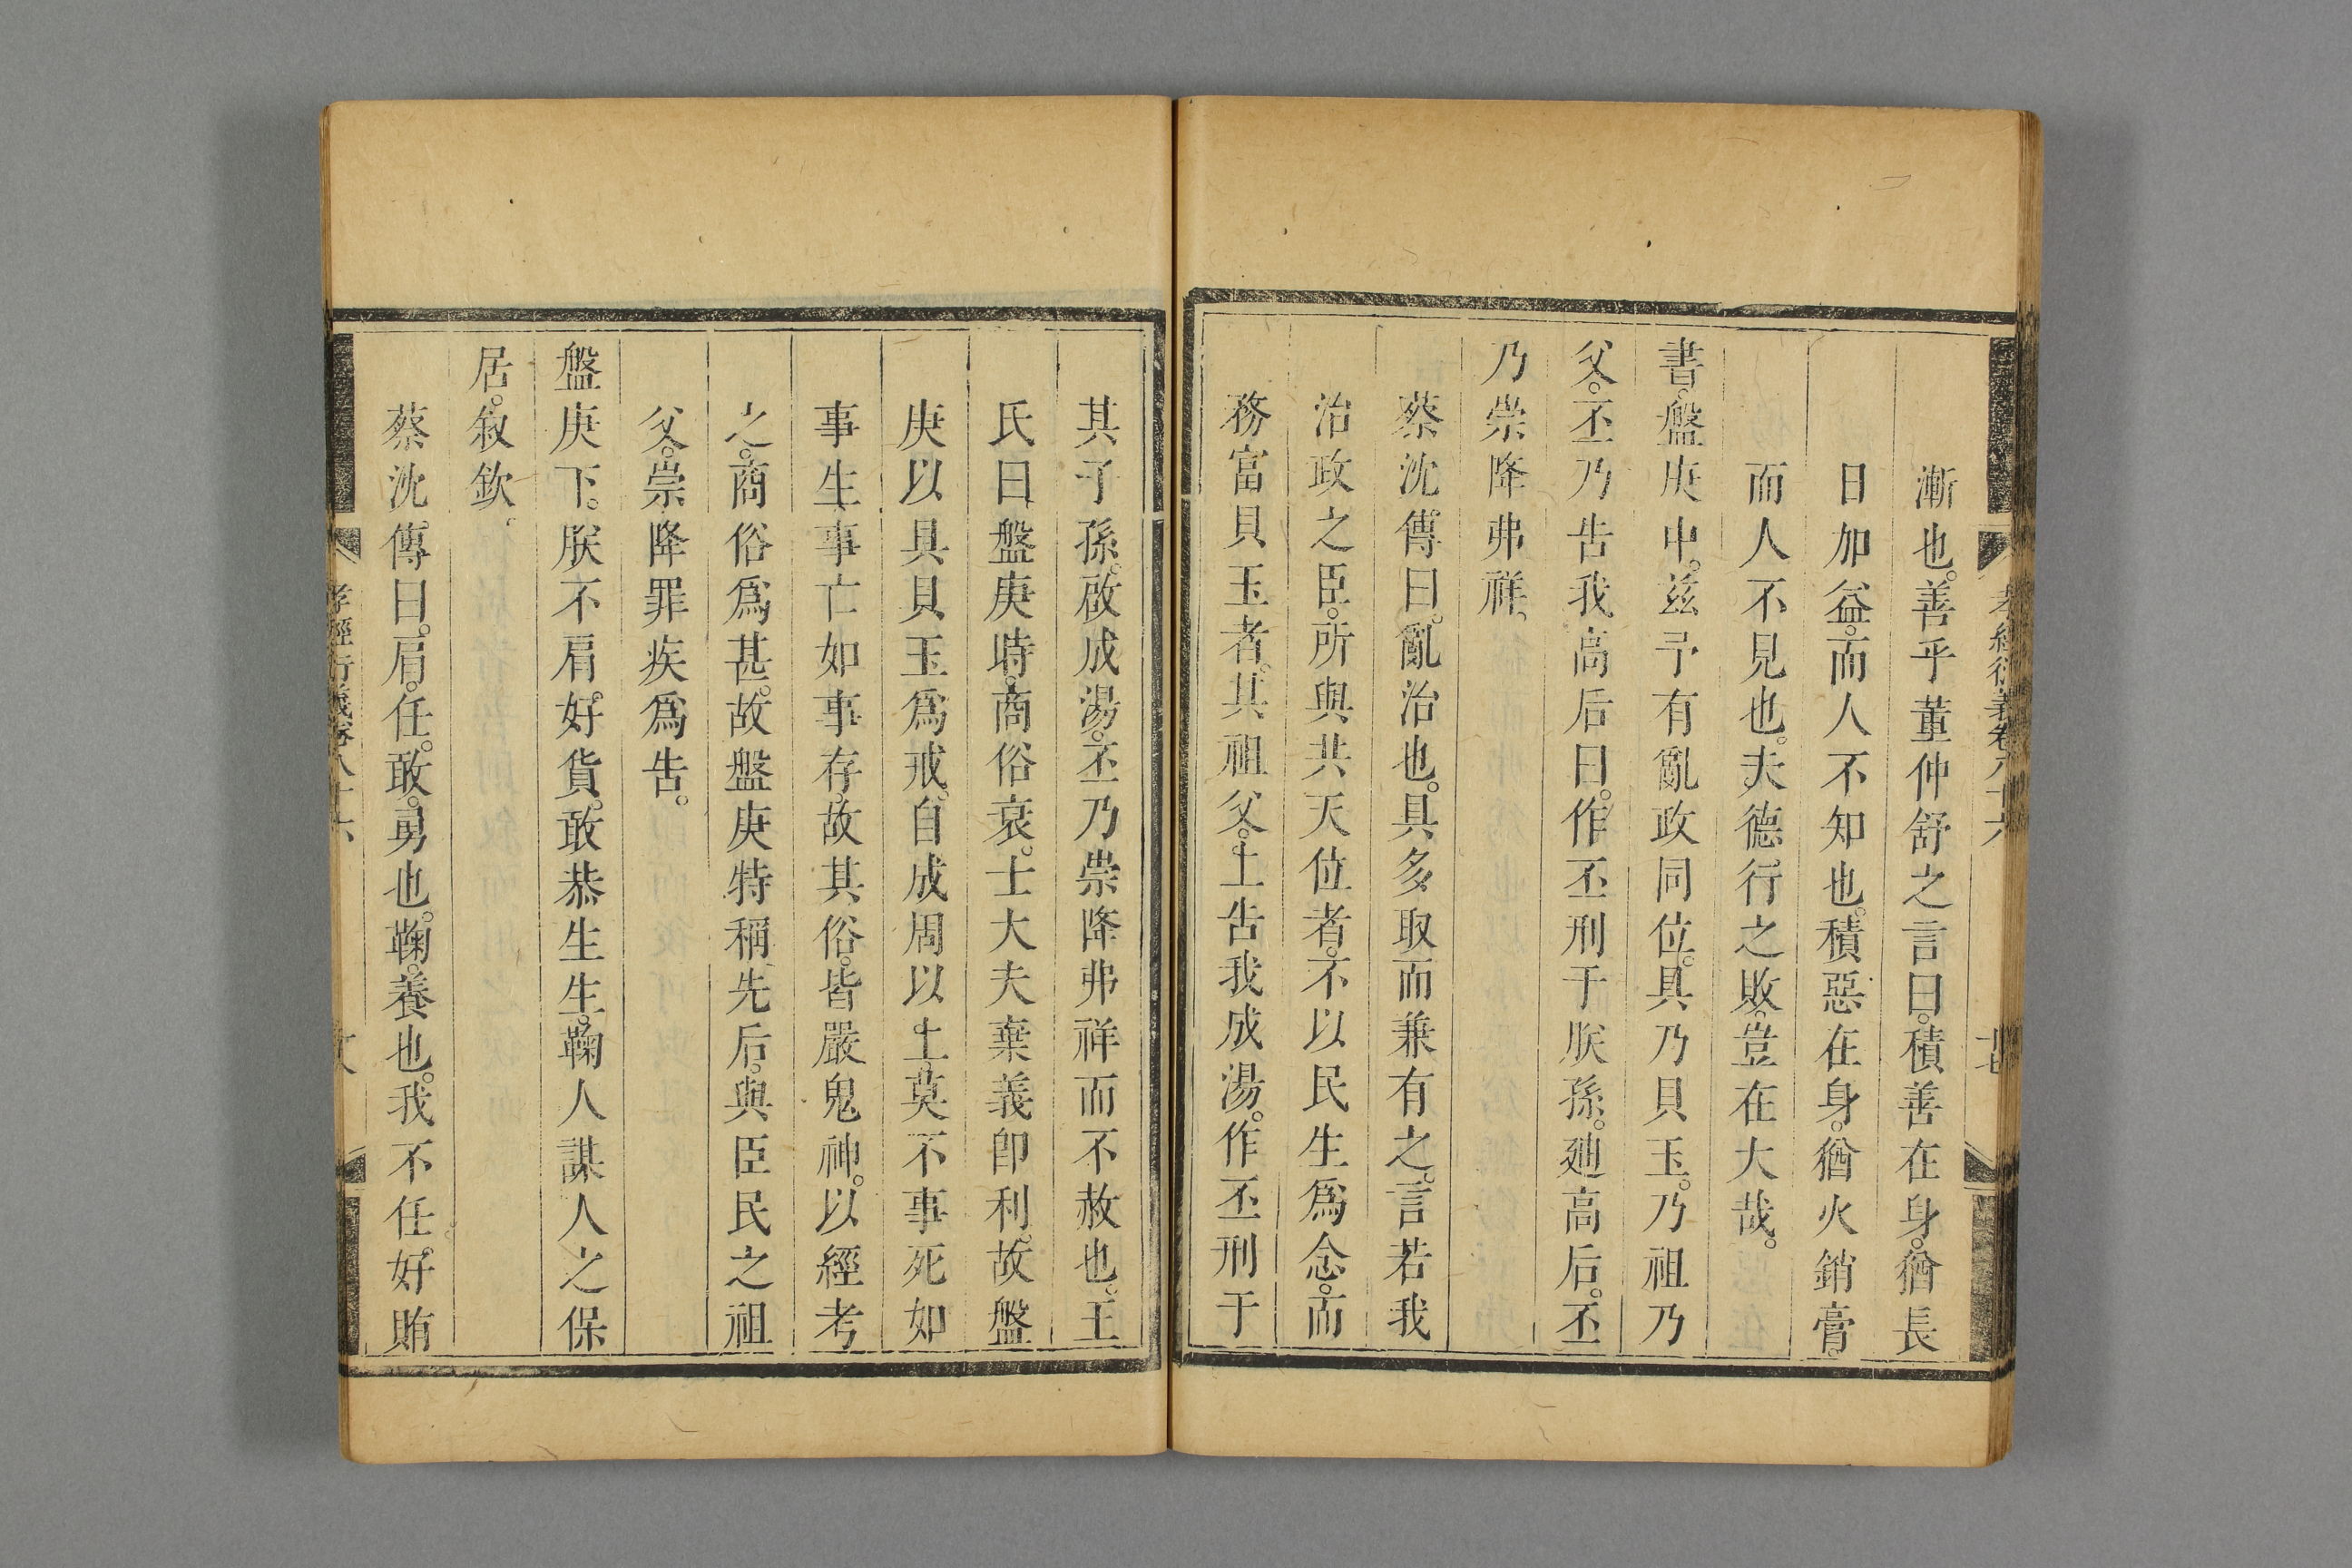 孝經衍義卷八十六
漸也。善乎董仲舒之言曰。積善在身。猶長
日加益。而人不知也。積惡在身。猶火銷膏。
而人不見也。夫德行之敗。豈在大哉。
書。盤庚中。兹予有亂政同位。具乃貝玉。乃祖乃
父。丕乃告我高后曰。作丕刑于朕孫。廸高后。丕
乃崇降弗祥。
蔡沈傳曰。亂治也。具多取而兼有之。言若我
治政之臣。所與共天位者。不以民生爲念。而
務富貝玉者。其祖父。上告我成湯。作丕刑于
其子孫。啟成湯。丕乃崇降弗祥而不赦也。王
氏曰盤庚時。商俗衰。士大夫棄義卽利。故盤
庚以具貝玉爲戒。自成周以上。莫不事死如
事生事亡如事存。故其俗。皆嚴鬼神。以經考
之。商俗爲甚。故盤庚特稱先后。與臣民之祖
父。崇降罪疾爲告。
盤庚下。朕不肩。好貨。敢恭生生。鞠人謀人之保
居。敘欽。
蔡沈傳曰。肩。任。敢。勇也。鞠。養也。我不任。好賄
孝經衍義卷八十六